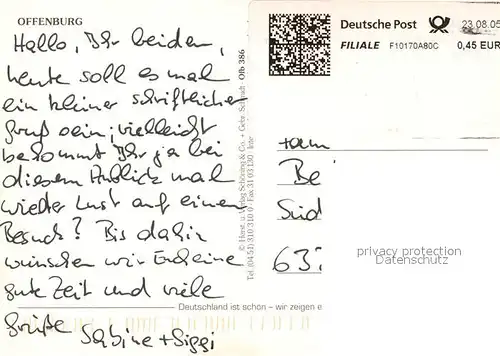 OFFENBURG
Hallo, Ihr beiden,
heute soll es mal
ein kleiner schriftlicher
Gruß sein; vielleicht
bekommt Ihr ja bei
diesem Anblick mal
wieder Lust auf einen
Besuch? Bis dahin
wünschen wir Euch eine
gute Zeit und viele
Grüße Sabine + Siggi
© Horst u. Verlag Schöning & Co. + Gebr. Schmidt Olb 386
Tel. (04 51) 310 310 Fax 31 03 130
Deutschland ist schön – wir zeigen e
Deutsche Post
23.08.05
FILIALE F10170A80C 0,45 EUR
Be
Süd
63
privacy protection
Datenschutz